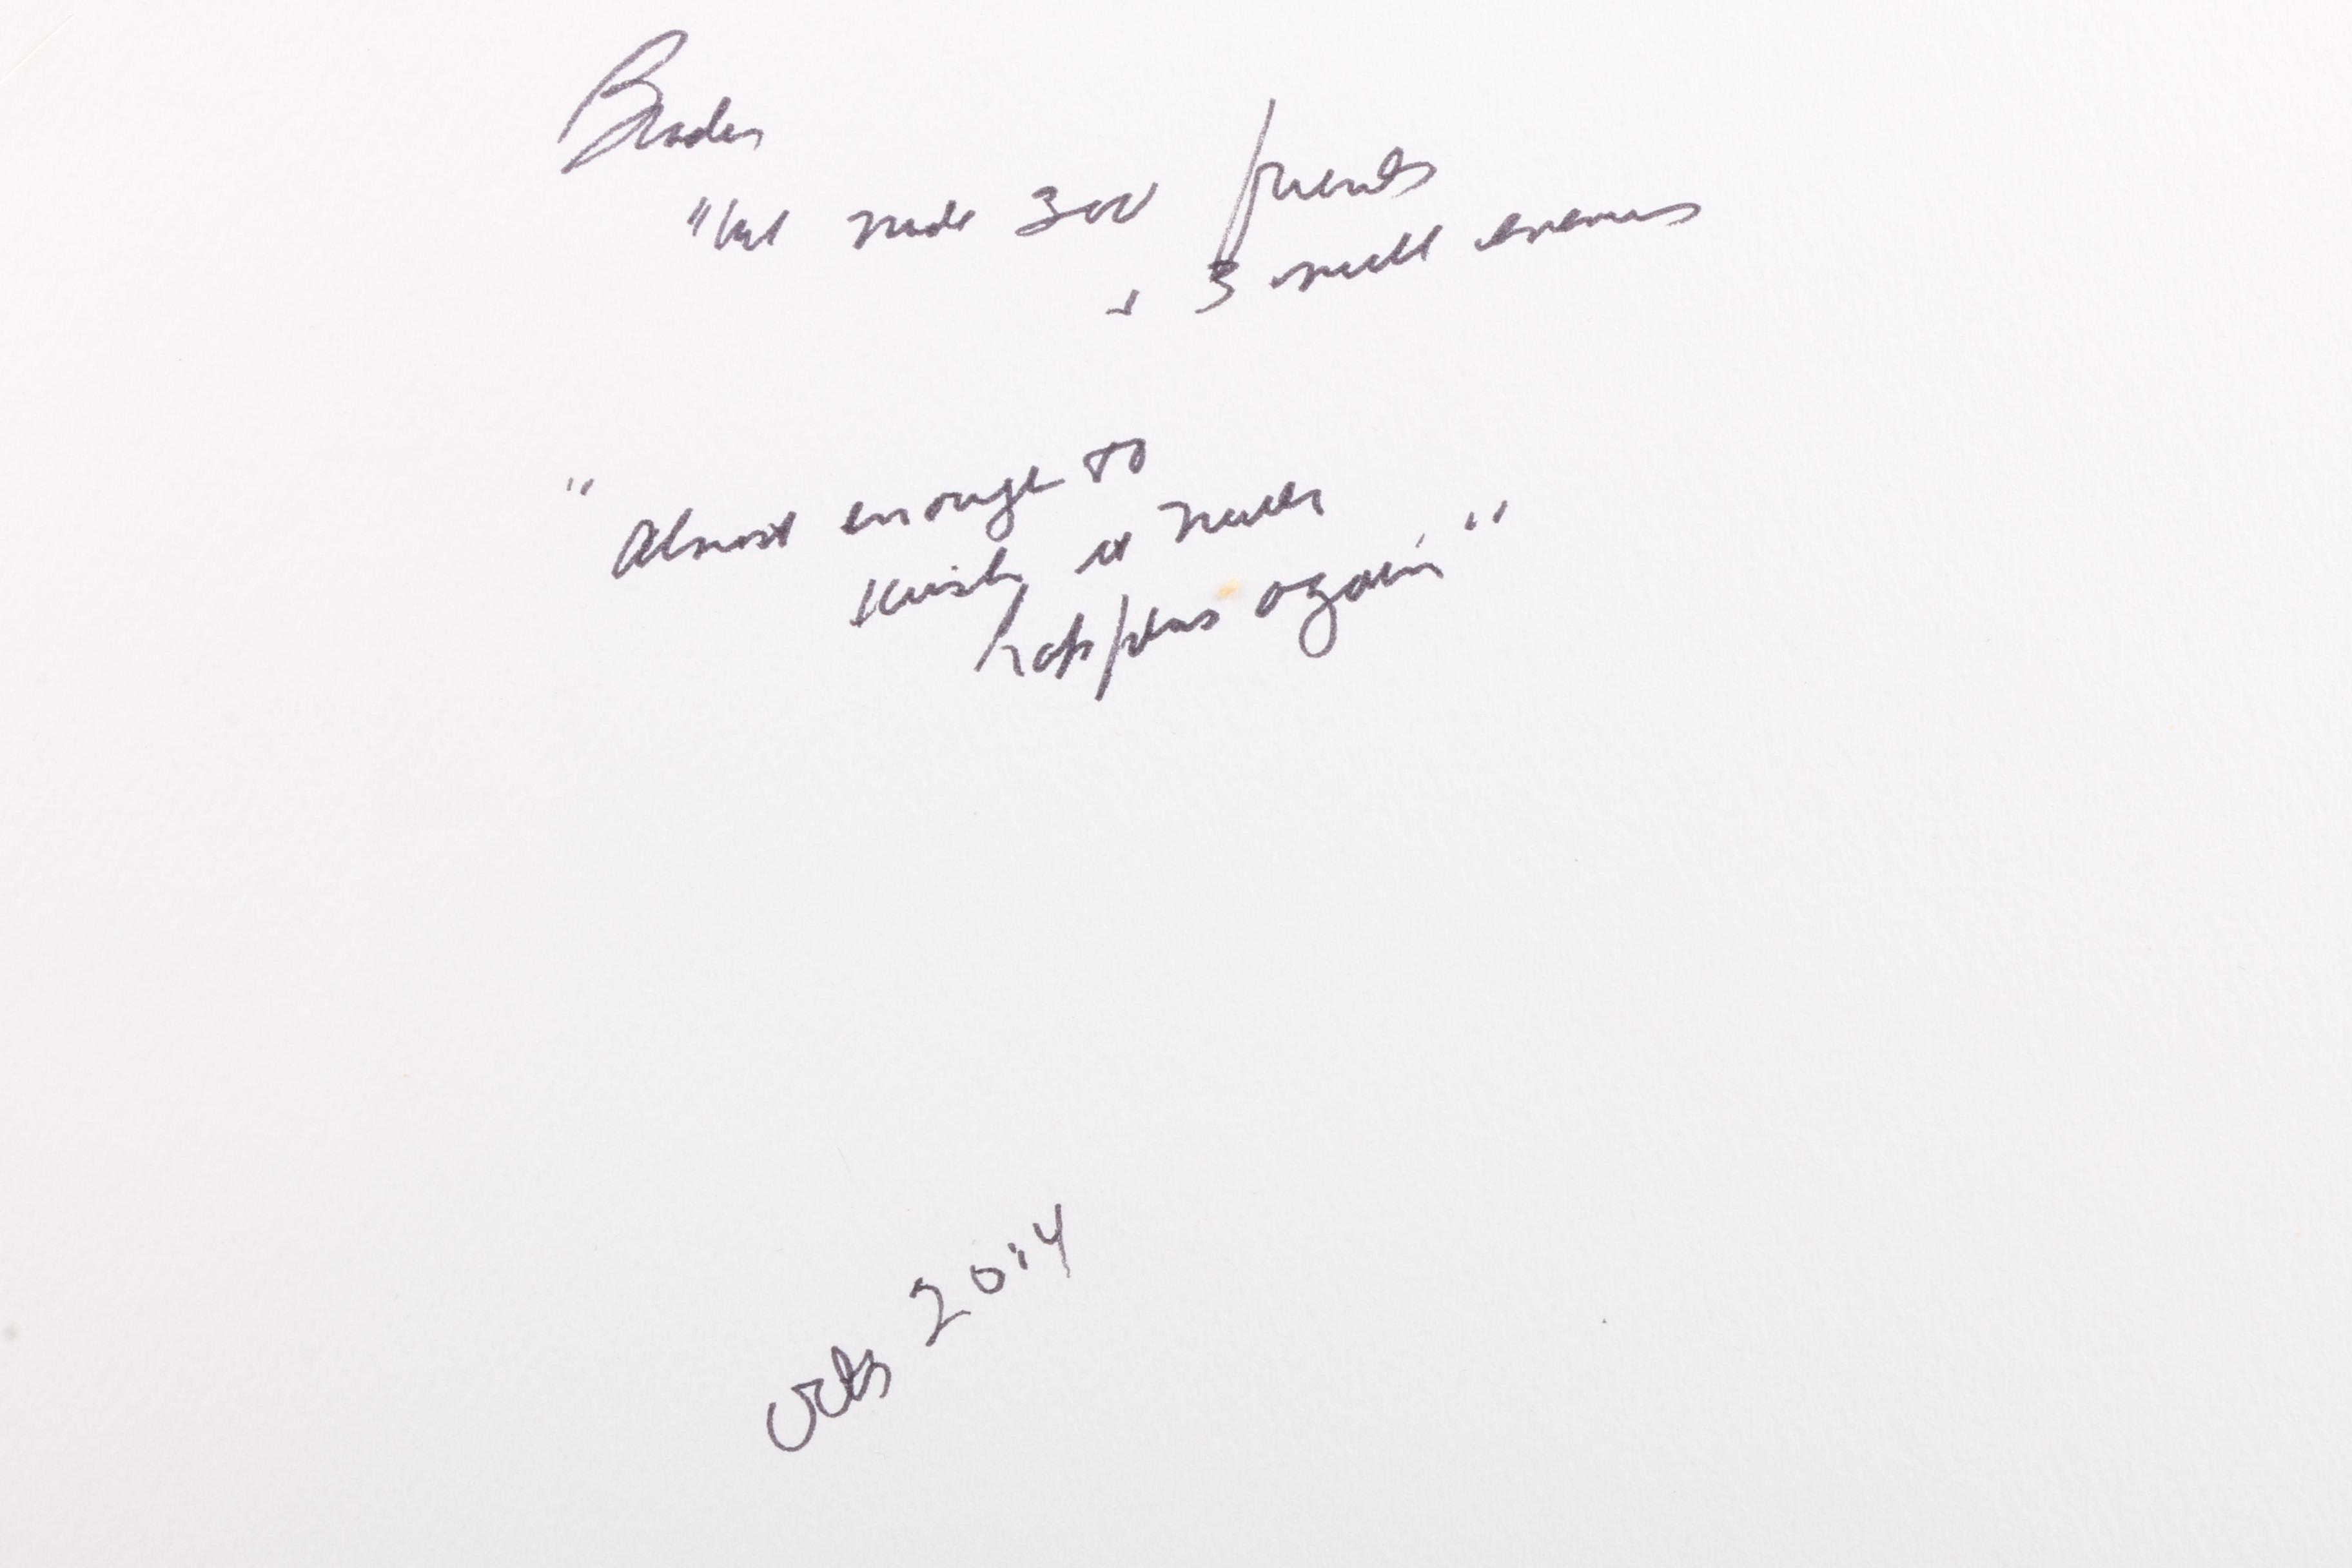 "We made 300 friends
& 3 small enemies
"Almost enough to
wish it never
happens again"
Oct 2014